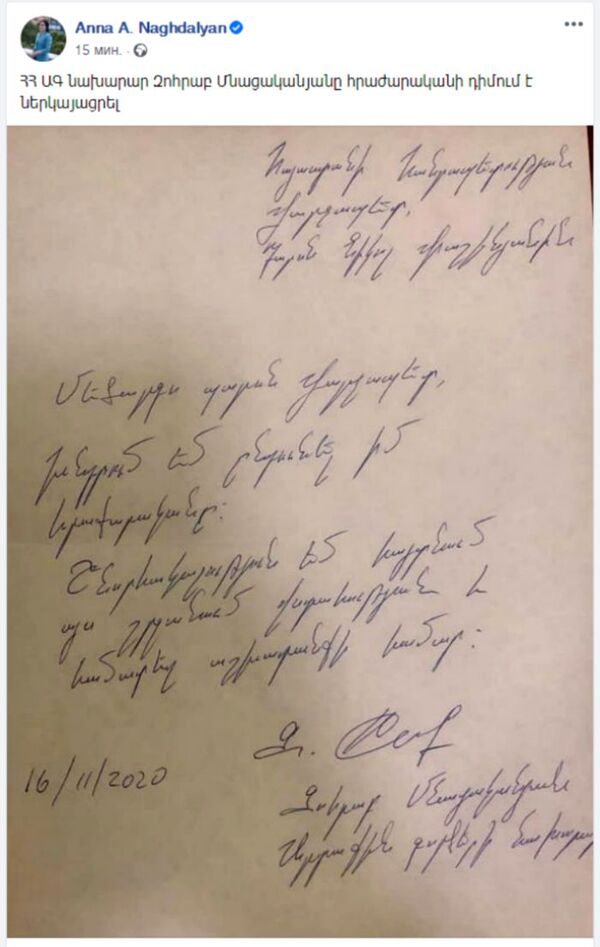 Anna A. Naghdalyan
15 мин. ·
ՀՀ ԱԳ նախարար Զոհրաբ Մնացականյանը հրաժարականի դիմում է
ներկայացրել
Հայաստանի Հանրապետության
վարչապետ,
Պարոն Նիկոլ Փաշինյանին
Մեծարգո պարոն վարչապետ,
Խնդրում եմ ընդունել իմ
հրաժարականը։
Շնորհակալություն եմ հայտնում
այս շրջանում վստահության և
համատեղ աշխատանքի համար։
16/11/2020
Զոհրաբ Մնացականյան
Արտաքին գործերի նախարար